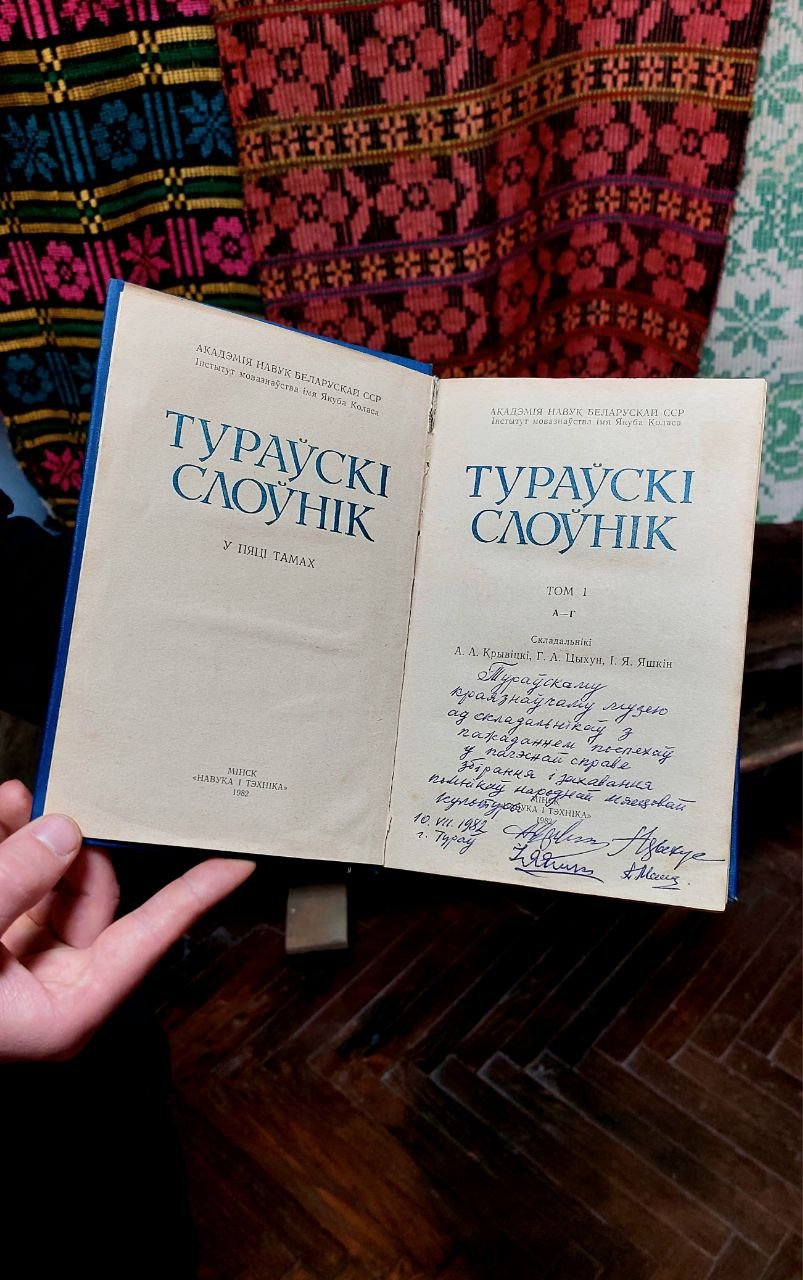 АКАДЭМІЯ НАВУК БЕЛАРУСКАЙ ССР
Інстытут мовазнаўства імя Якуба Коласа
ТУРАЎСКІ
СЛОЎНІК
У ПЯЦІ ТАМАХ
МІНСК
«НАВУКА І ТЭХНІКА»
1982
АКАДЭМІЯ НАВУК БЕЛАРУСКАЙ ССР
Інстытут мовазнаўства імя Якуба Коласа
ТУРАЎСКІ
СЛОЎНІК
ТОМ 1
А—Г
Складальнікі
А. А. Крывіцкі, Г. А. Цыхун, І. Я. Яшкін
Тураўскаму
краязнаўчаму музею
ад складальнікаў з
пажаданнем поспехаў
у пачэснай справе
збірання і захавання
помнікаў народнай мясцовай
культуры
МІНСК
«НАВУКА І ТЭХНІКА»
1982
10. VII. 1982
г. Тураў